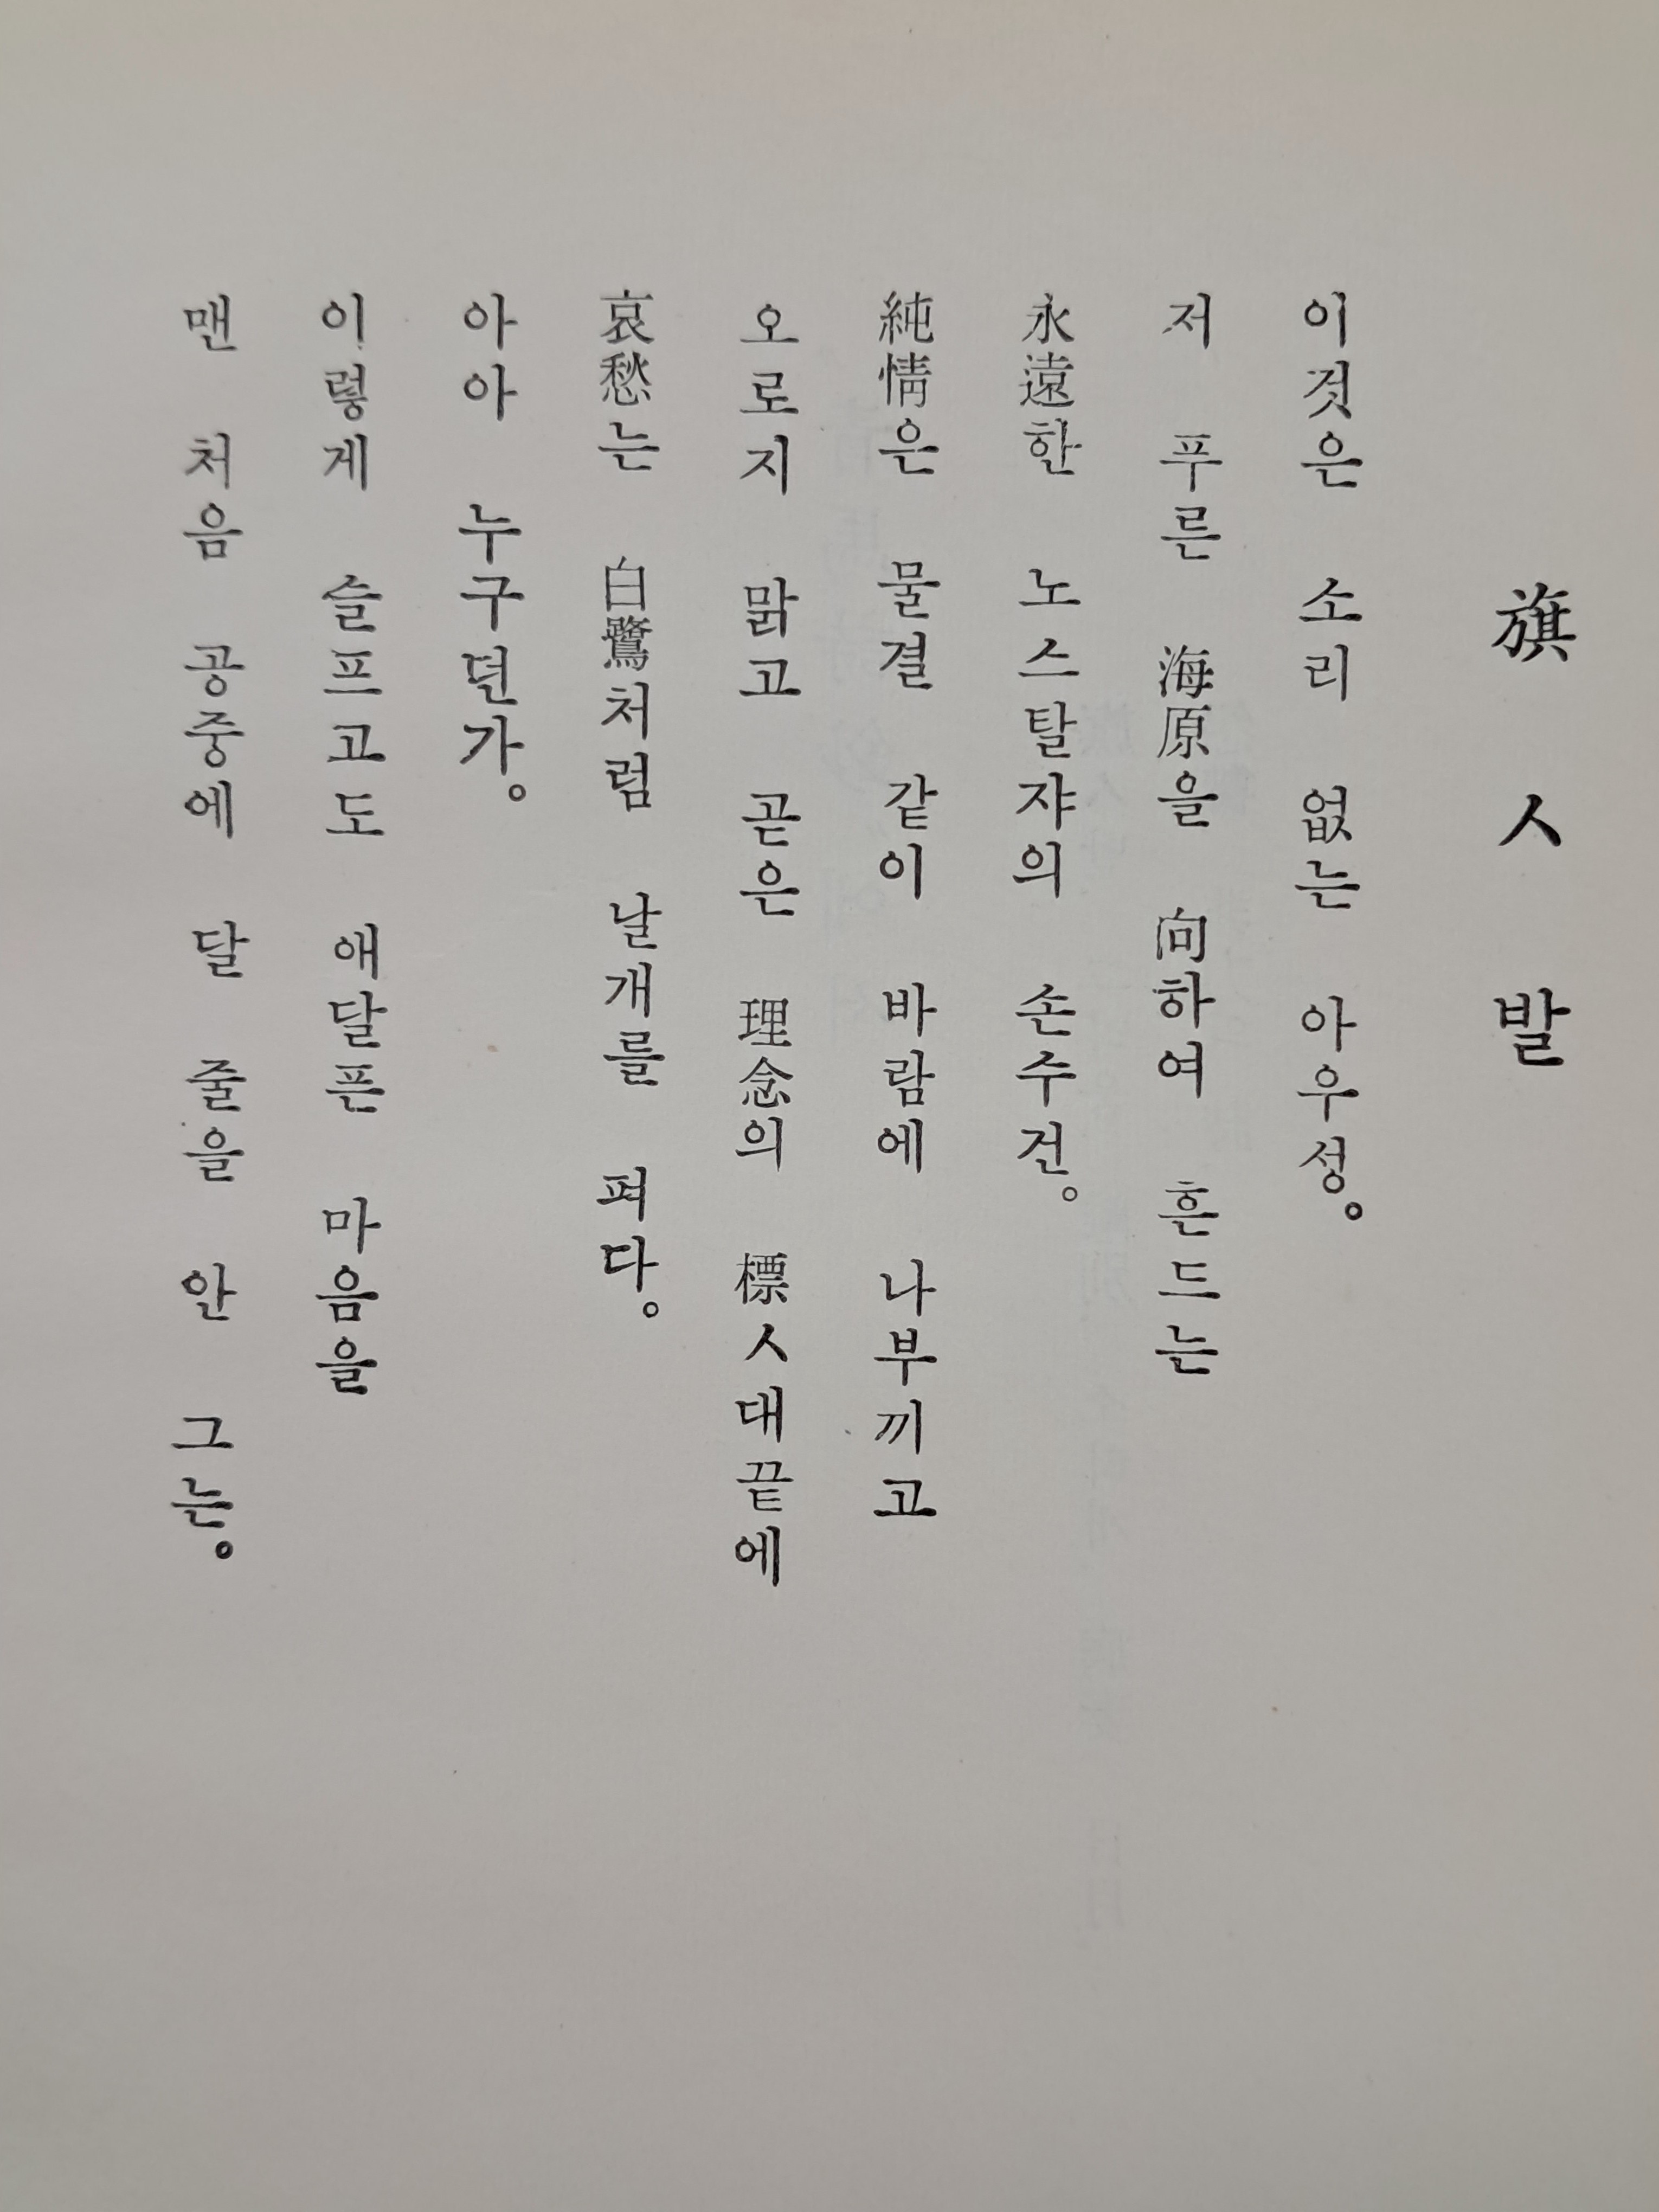 旗ㅅ발
이것은 소리 없는 아우성。
저 푸른 海原을 向하여 흔드는
永遠한 노스탈쟈의 손수건。
純情은 물결 같이 바람에 나부끼고
오로지 맑고 곧은 理念의 標ㅅ대끝에
哀愁는 白鷺처럼 날개를 펴다。
아아 누구던가。
이렇게 슬프고도 애달픈 마음을
맨 처음 공중에 달 줄을 안 그는。